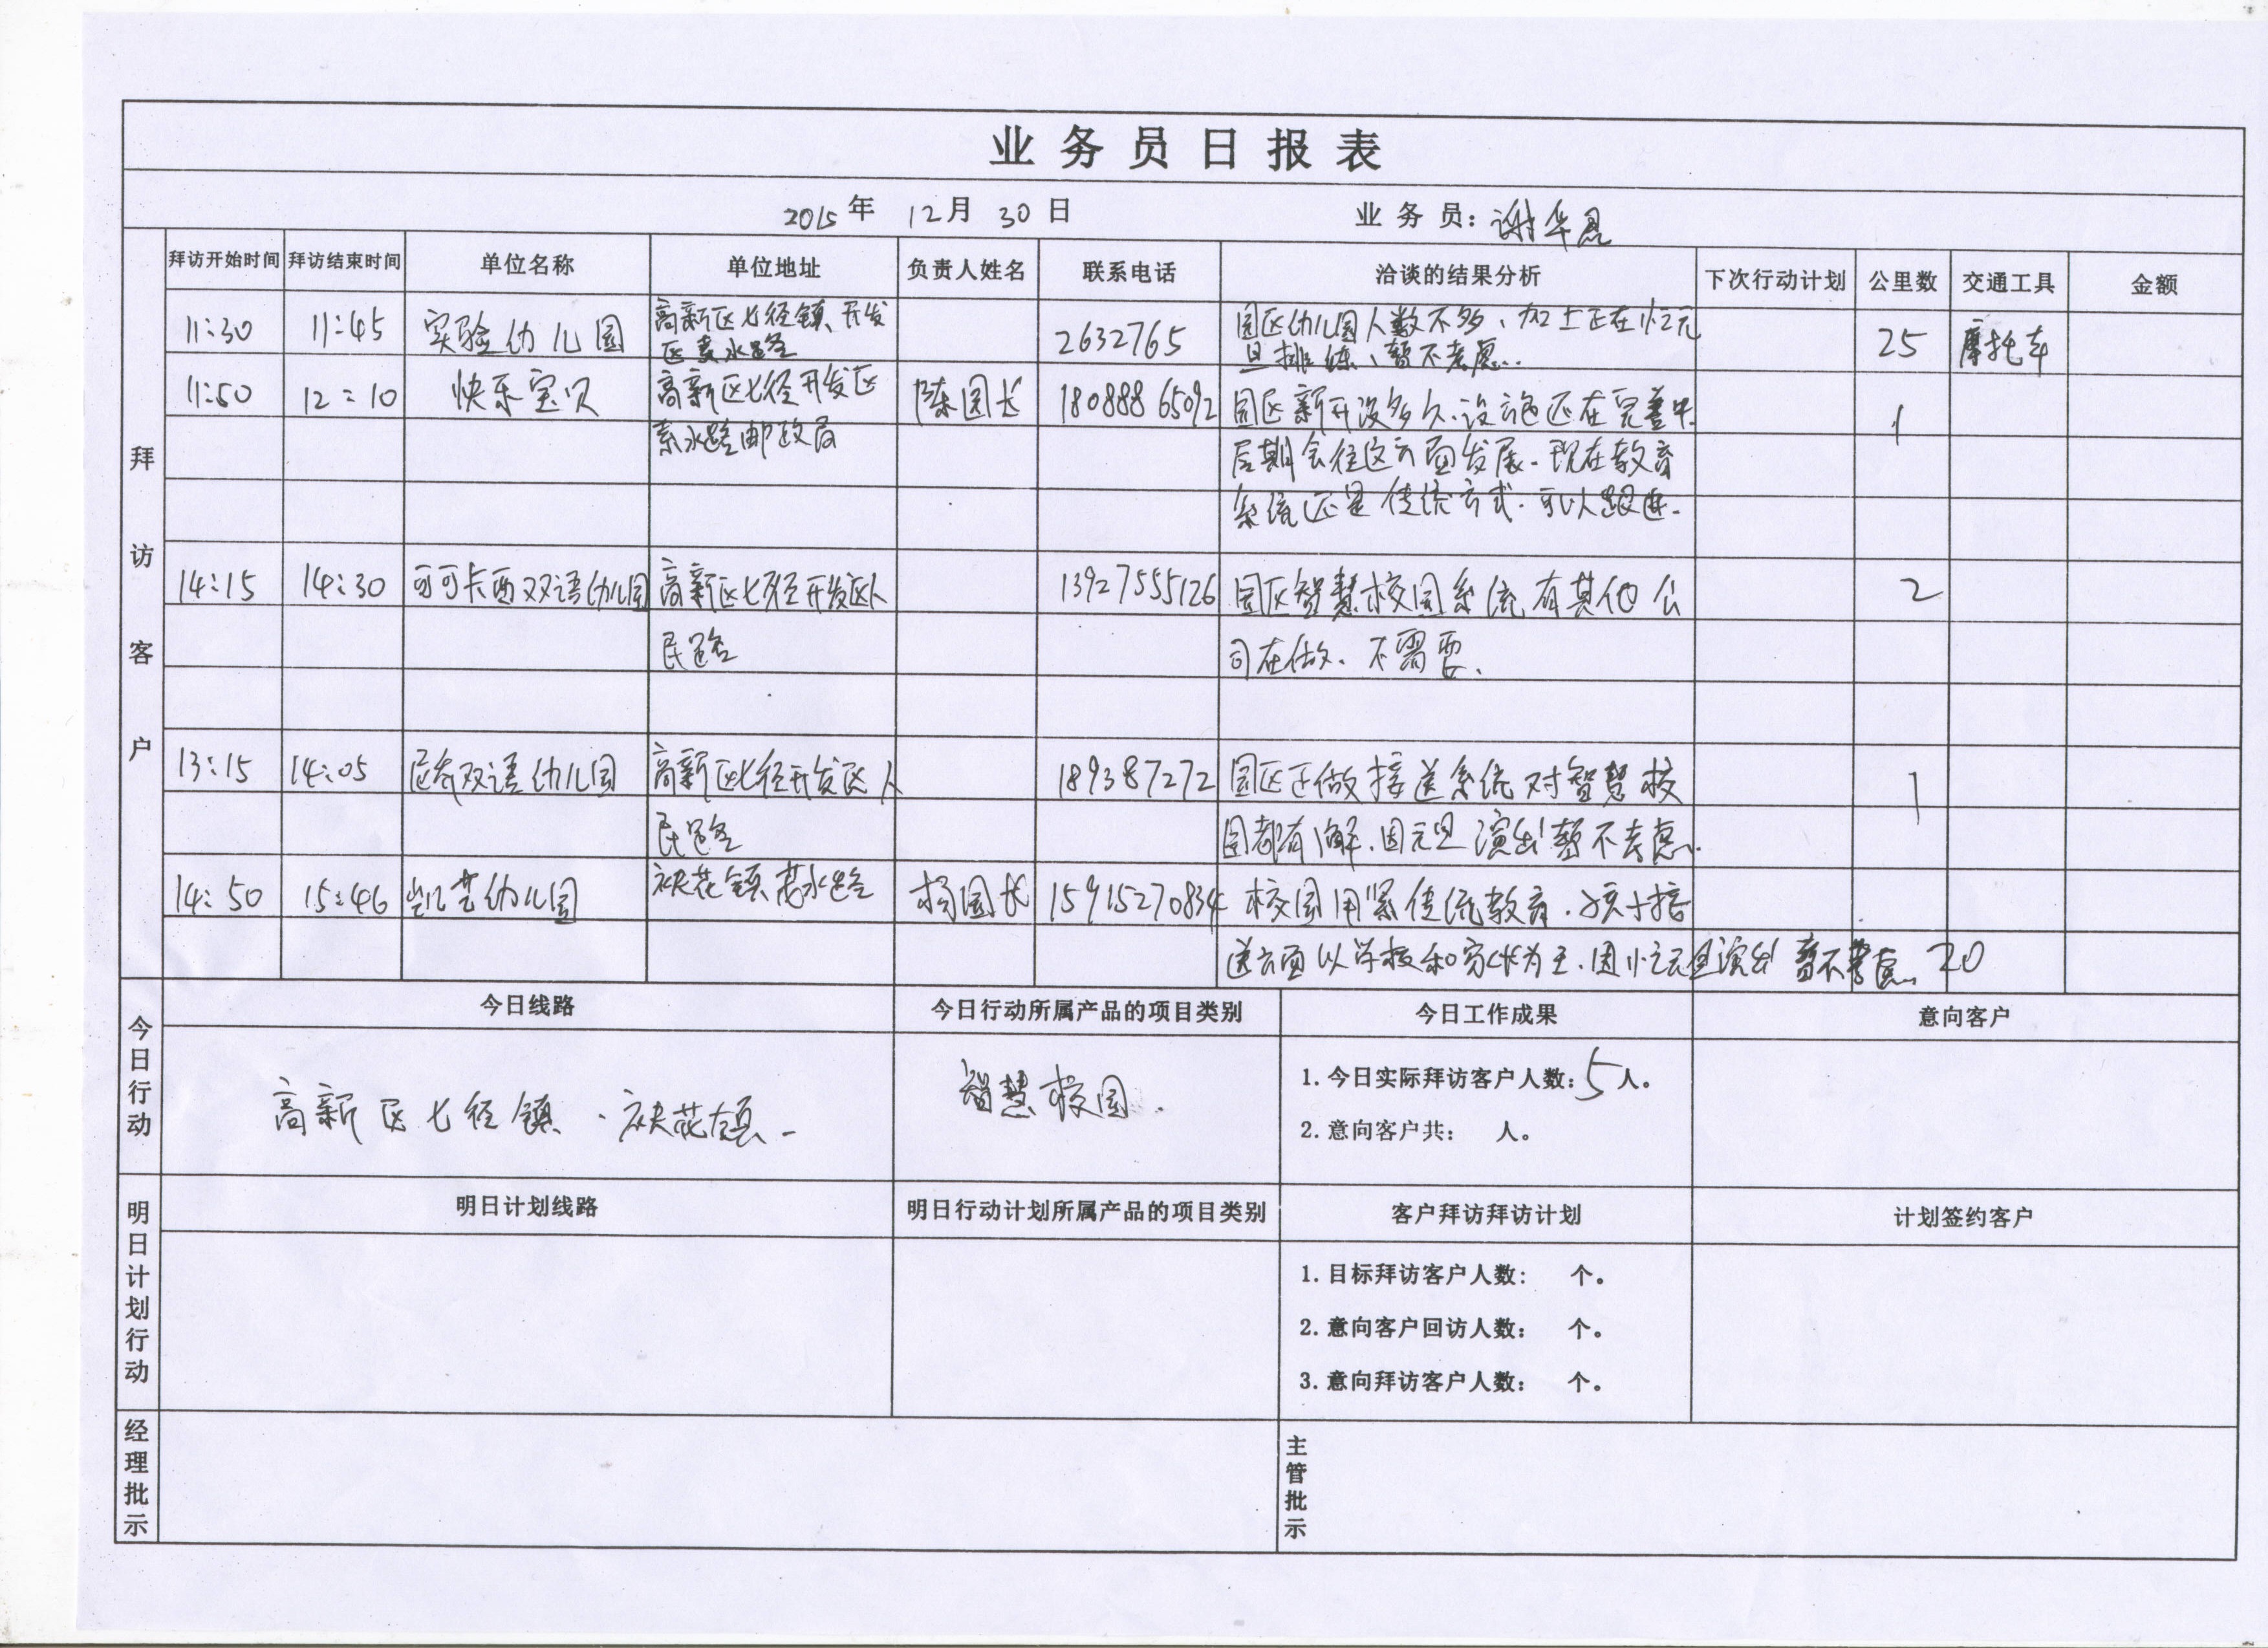 业务员日报表
2015年 12月 30日 业务员: 谢华恩
拜访开始时间 拜访结束时间 单位名称 单位地址 负责人姓名 联系电话 洽谈的结果分析 下次行动计划 公里数 交通工具 金额
拜访客户
11:30 11:45 实验幼儿园 高新区七径镇、开发 2632765 园区幼儿园人数不多、加上正在忙元 25 摩托车
区 水路 旦排练、暂不考虑..
11:50 12:10 快乐宝贝 高新区七径开发区 陈园长 18088865092 园区新开没多久、设施还在完善中. 1
水路邮政局 后期会往这方面发展. 现在教育
系统还是传统方式. 可以跟进.
14:15 14:30 可可卡西双语幼儿园 高新区七径开发区人 13927555126 园区智慧校园系统有其他公 2
民路 司在做. 不需要.
13:15 14:05 双语幼儿园 高新区七径开发区人 189387272 园区正做接送系统对智慧校 1
民路 园都有了解.因元旦演出暂不考虑.
14:50 15:46 凯艺幼儿园 袂花镇 水路 杨园长 15915270834 校园用紧传统教育. 孩子接
送方面以学校和家长为主.因忙元旦演出暂不考虑. 20
今日行动
今日线路 今日行动所属产品的项目类别 今日工作成果 意向客户
高新区七径镇、袂花镇. 智慧校园.
1.今日实际拜访客户人数:5人。
2.意向客户共: 人。
明日计划行动
明日计划线路 明日行动计划所属产品的项目类别 客户拜访拜访计划 计划签约客户
1.目标拜访客户人数: 个。
2.意向客户回访人数: 个。
3.意向拜访客户人数: 个。
经理批示 主管批示